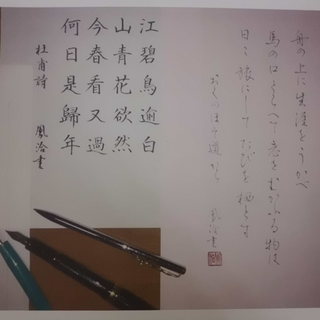 舟の上に生涯をうかべ
馬の口とらへて老をむかふる物は
日々旅にしてたびを栖とす
おくのほそ道から
鳳洽書
江碧鳥逾白
山青花欲然
今春看又過
何日是歸年
杜甫詩 鳳洽書